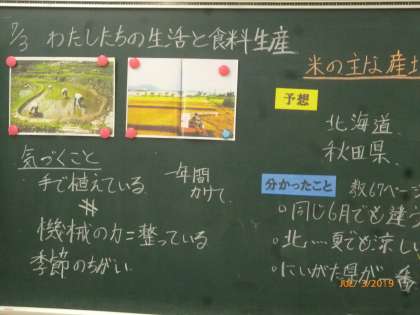 7/3 わたしたちの生活と食料生産
米の主な産地
予想
北海道
秋田県
気づくこと
手で植えている
一年間
かけて
機械の力=整っている
季節のちがい
分かったこと 教67ページ
○同じ6月でも違う
○北…夏でも涼しい
○にいがた県が一番
JUL/3/2019